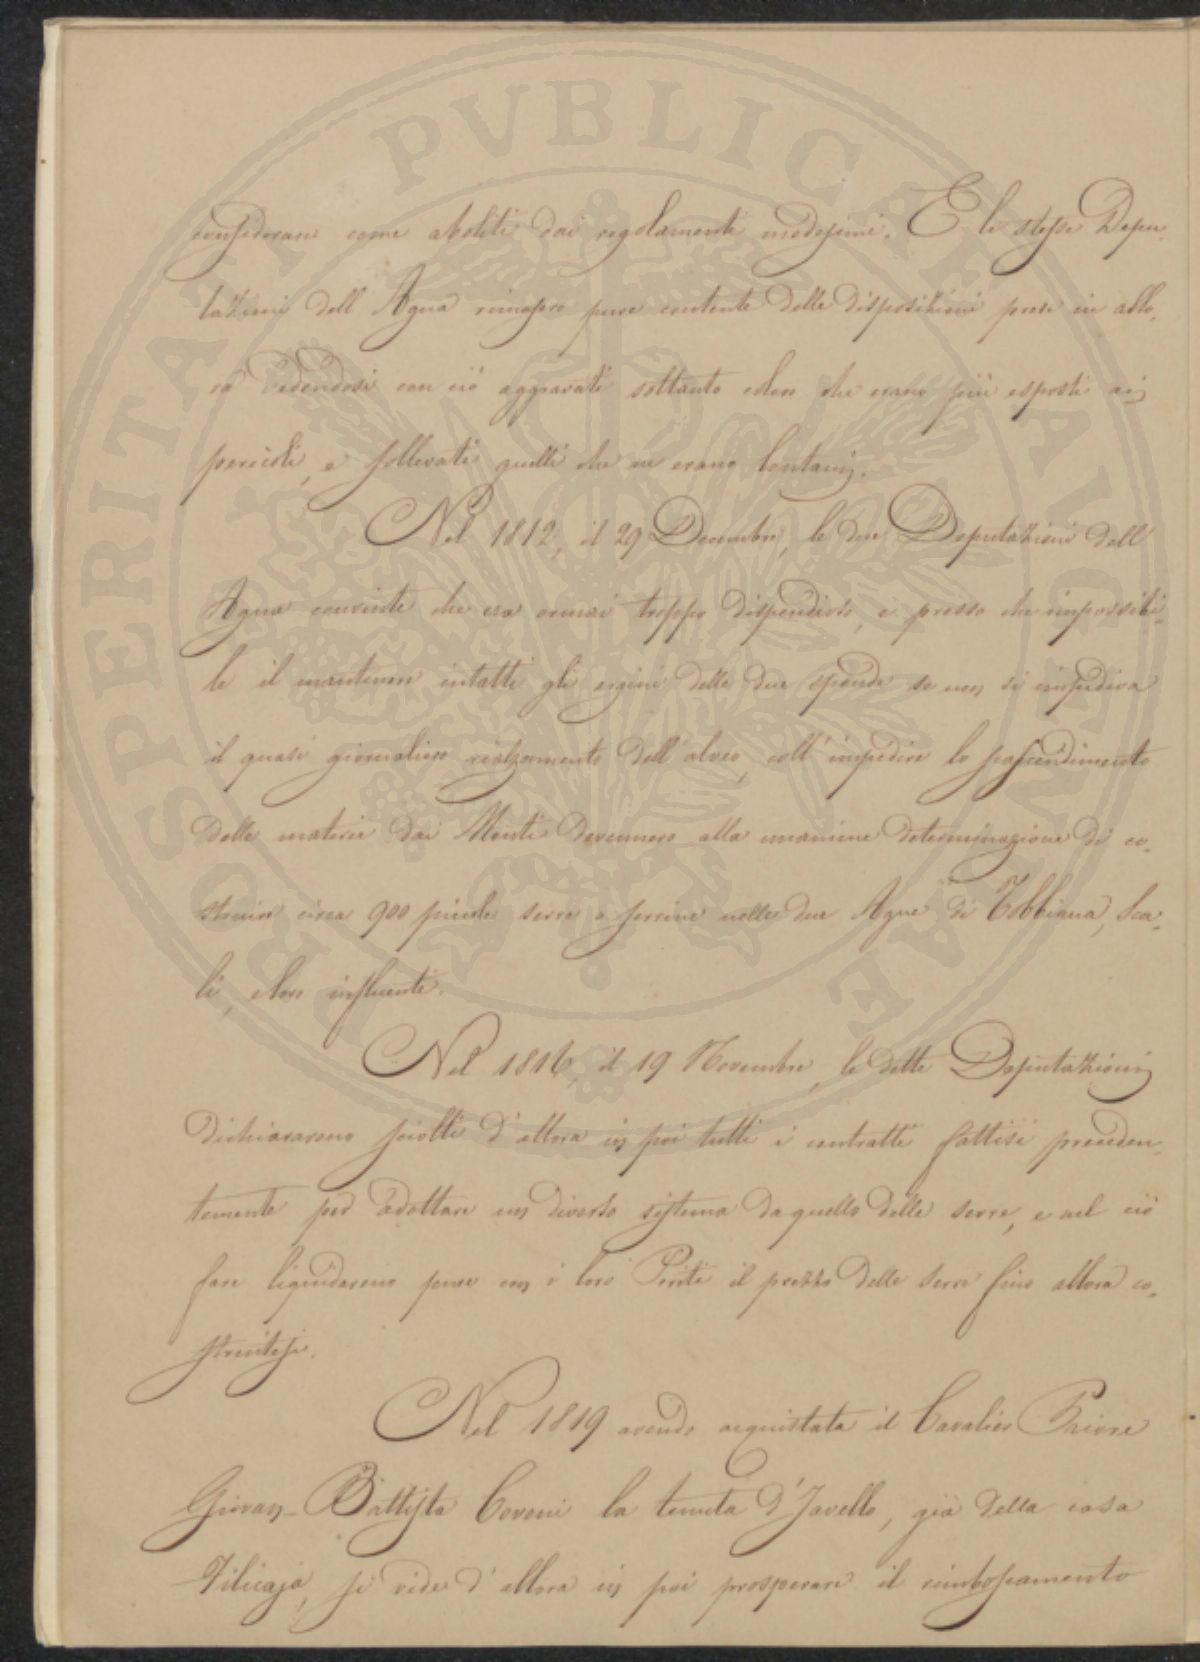 considerare come aboliti dai regolamenti medesimi. E le stesse Depu-
tazioni dell'Agna rimasero pure contente delle disposizioni prese in allo-
ra vedendosi con ciò aggravati soltanto coloro che erano più esposti ai
pericoli, e sollevati quelli che ne erano lontani.
Nel 1812, il 29 Decembre, le due Deputazioni dell'
Agna convinte che era ormai troppo dispendioso, e presso che impossibi-
le il mantenere intatti gli argini delle due sponde se non si impediva
il quasi giornaliero rialzamento dell'alveo, coll'impedire lo scoscendimento
delle materie dai Monti devennero alla unanime determinazione di co-
struire circa 900 piccole serre o serrine nelle due Agne di Tobbiana, Sca-
li, e loro influenti.
Nel 1816, il 19 Novembre, le dette Deputazioni
dichiararono sciolti d'allora in poi tutti i contratti fattisi preceden-
temente per adottare un diverso sistema da quello delle serre, e nel ciò
fare liquidarono pure con i loro Periti il prezzo delle serre fino allora co-
struitesi.
Nel 1819 avendo acquistata il Cavalier Priore
Giovan-Battista Covoni la tenuta d'Javello, già della casa
Filicaja, si vide d'allora in poi prosperare il rimboscamento
PROSPERITATI PVBLICAE AVGENDAE